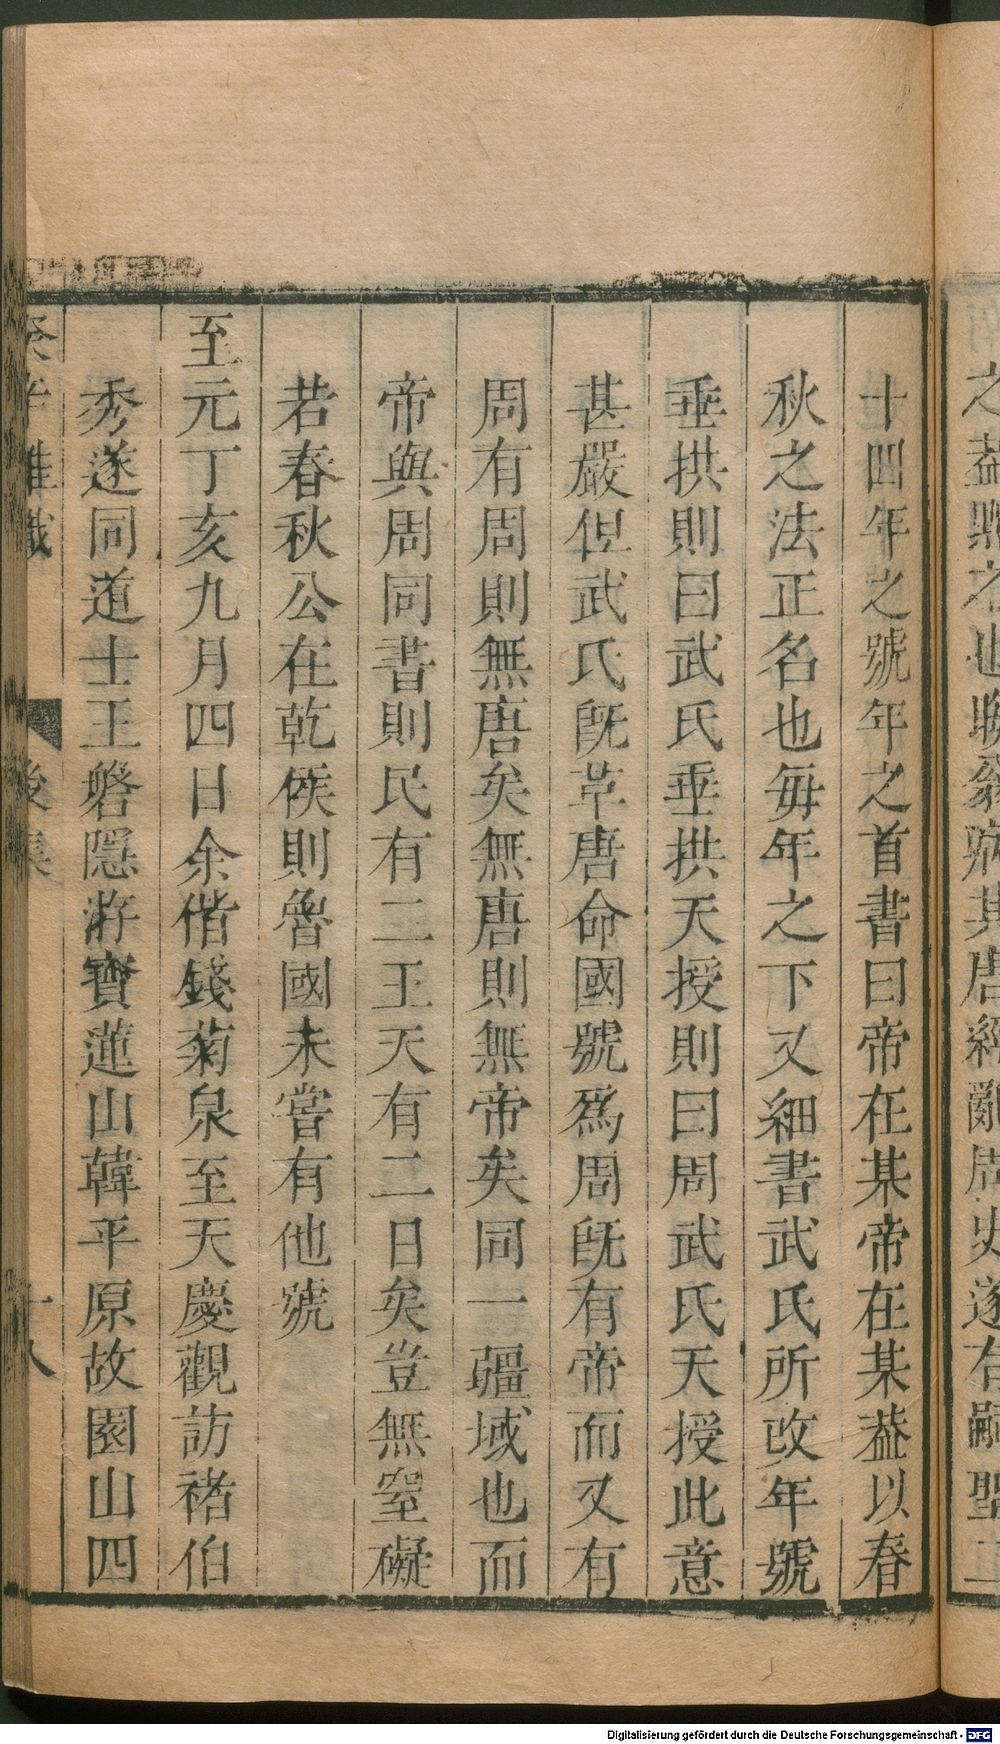 之盖
十四年之號年之首書曰帝在某帝在某葢以春
秋之法正名也毎年之下又細書武氏所改年號
垂拱則曰武氏垂拱天授則曰周武氏天授此意
甚嚴但武氏旣革唐命國號爲周旣有帝而又有
周有周則無唐矣無唐則無帝矣同一疆域也而
帝與周同書則民有二王天有二日矣豈無窒礙
若春秋公在乾侯則魯國未嘗有他號
至元丁亥九月四日余偕錢菊泉至天慶觀訪褚伯
秀遂同道士王磐隱游寶蓮山韓平原故園山四
Digitalisierung gefördert durch die Deutsche Forschungsgemeinschaft - DFG